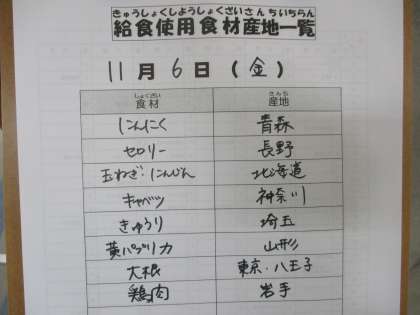 きゅうしょくしようしょくざいさんちいちらん
給食使用食材産地一覧
11月6日(金)
しょくざい さんち
食材 産地
にんにく 青森
セロリー 長野
玉ねぎ・にんじん 北海道
キャベツ 神奈川
きゅうり 埼玉
黄パプリカ 山形
大根 東京・八王子
鶏肉 岩手